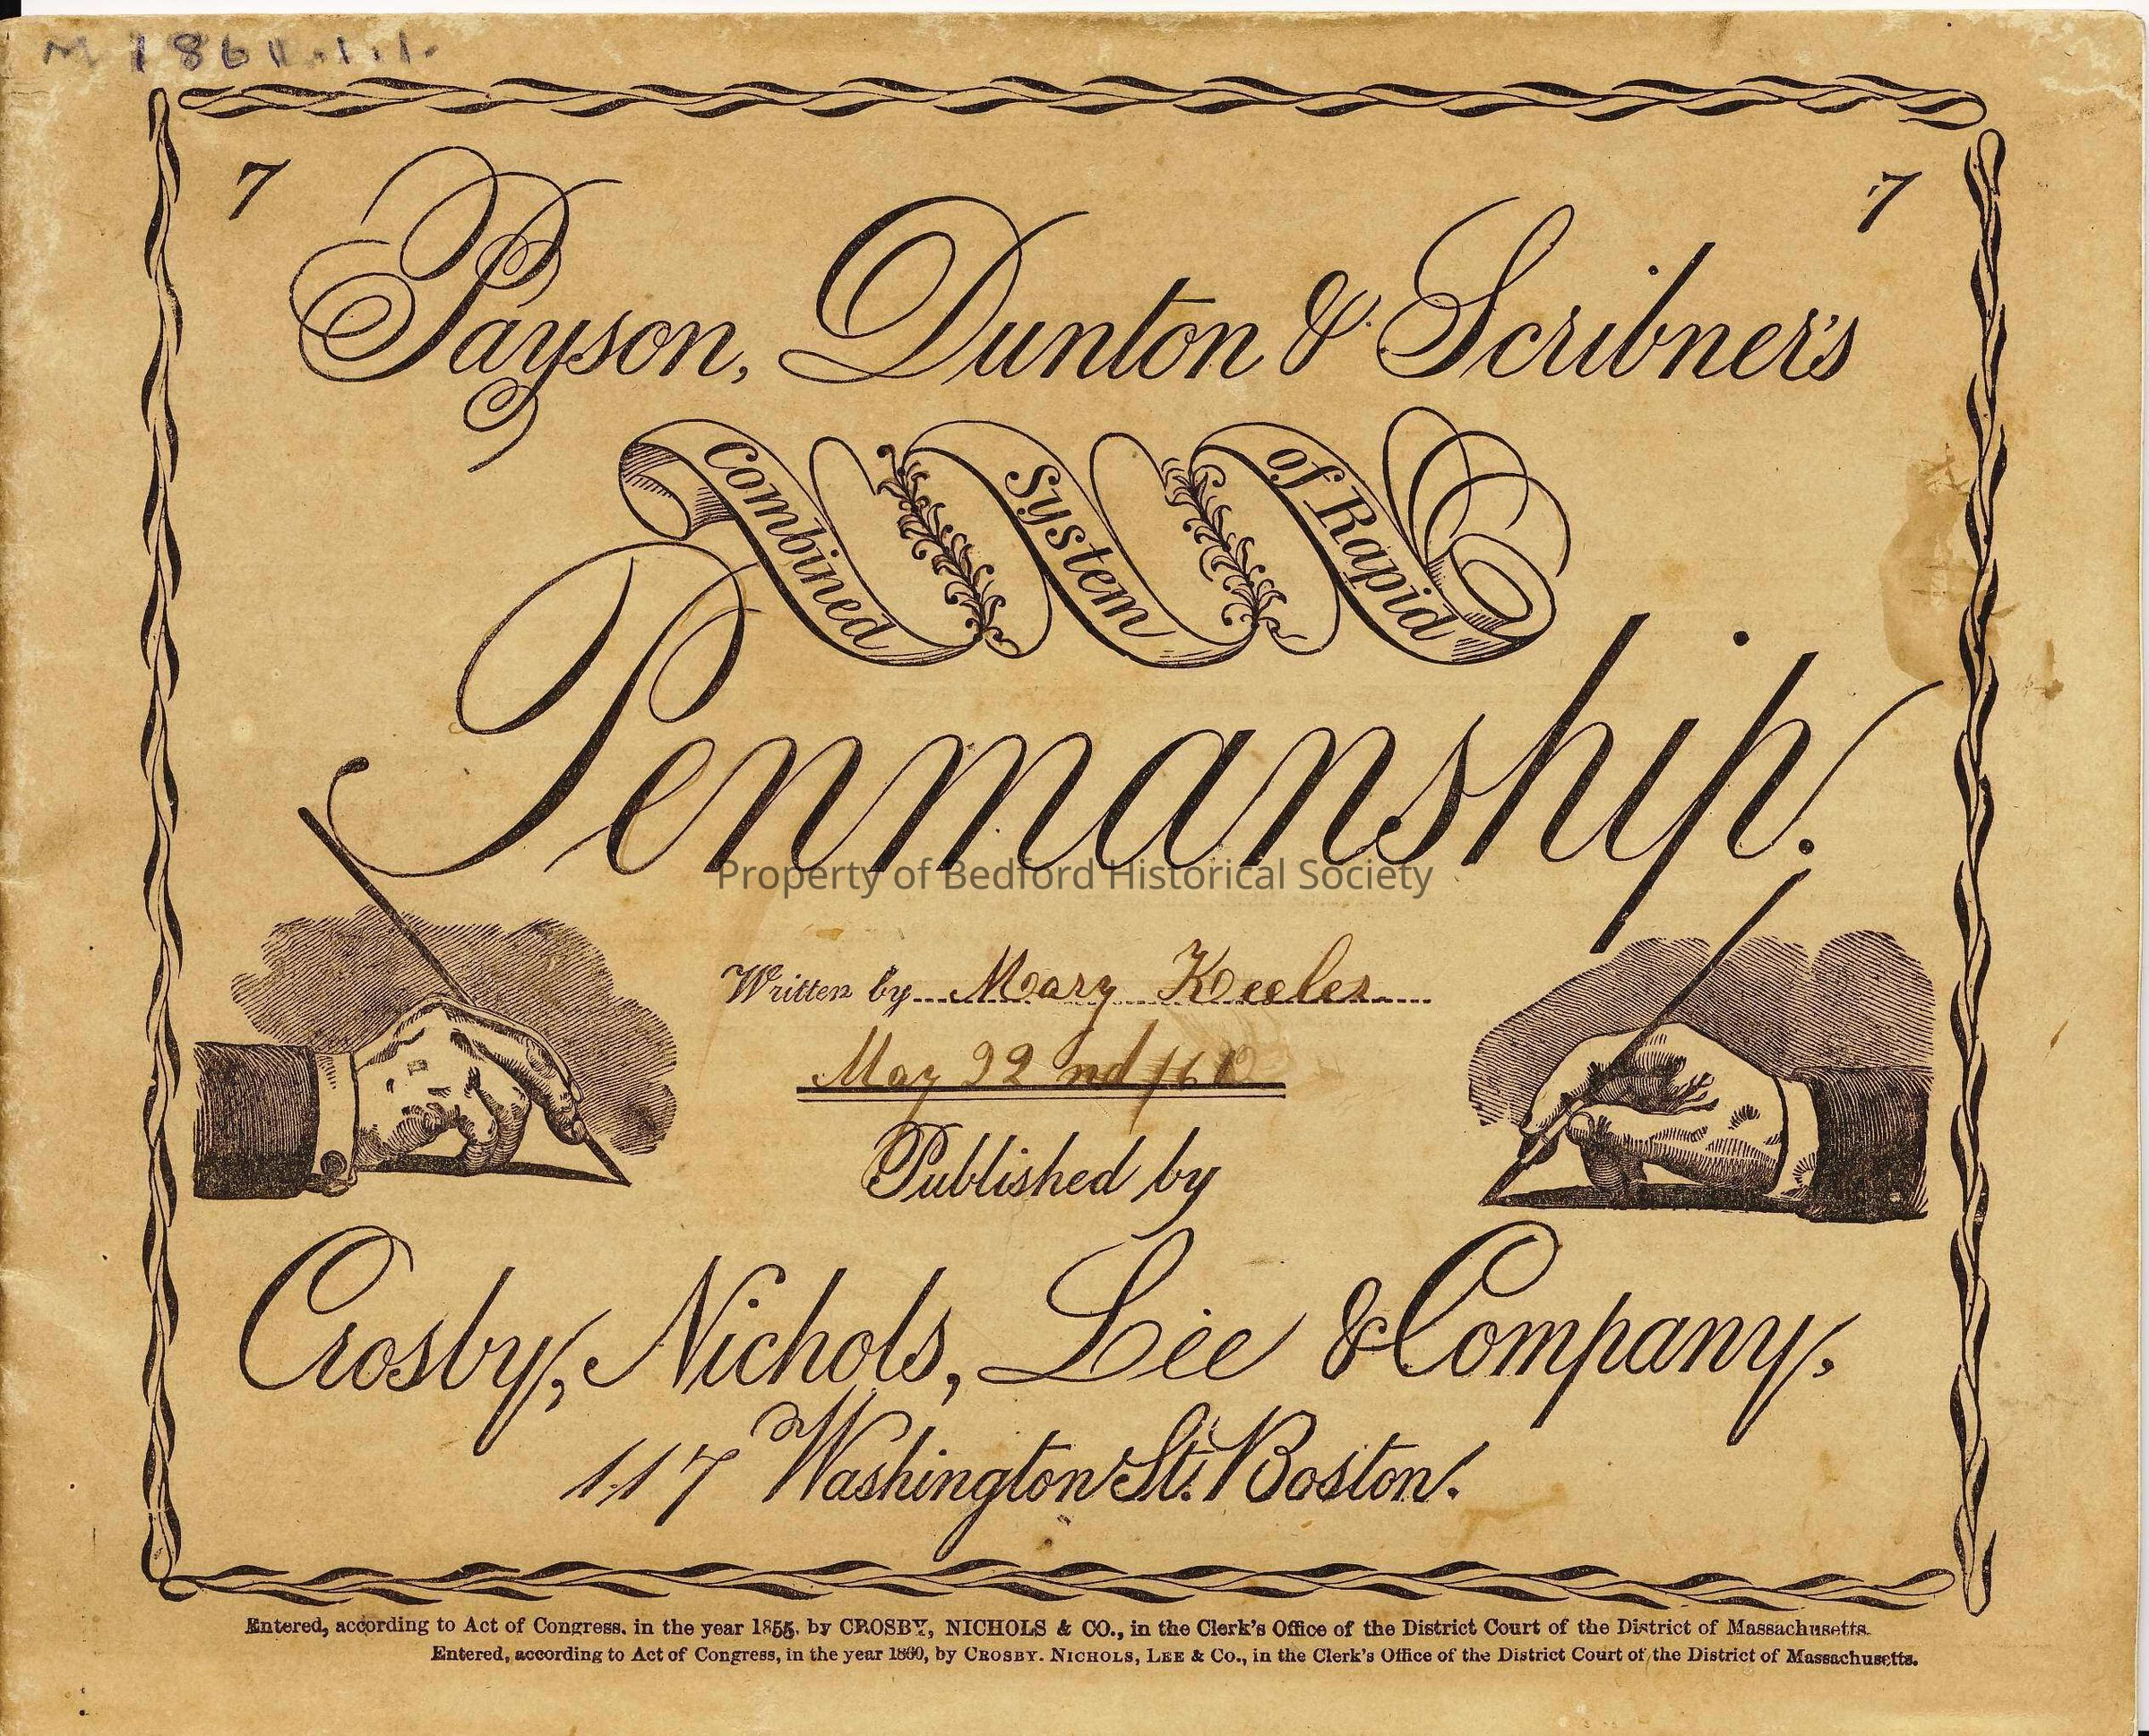 7 7
Payson, Dunton & Scribner's
Combined System of Rapid
Penmanship.
Property of Bedford Historical Society
Written by Mary Keeler
May 22nd
Published by
Crosby, Nichols, Lee & Company,
117 Washington St. Boston.
Entered, according to Act of Congress, in the year 1855, by CROSBY, NICHOLS & CO., in the Clerk's Office of the District Court of the District of Massachusetts.
Entered, according to Act of Congress, in the year 1860, by CROSBY, NICHOLS, LEE & CO., in the Clerk's Office of the District Court of the District of Massachusetts.